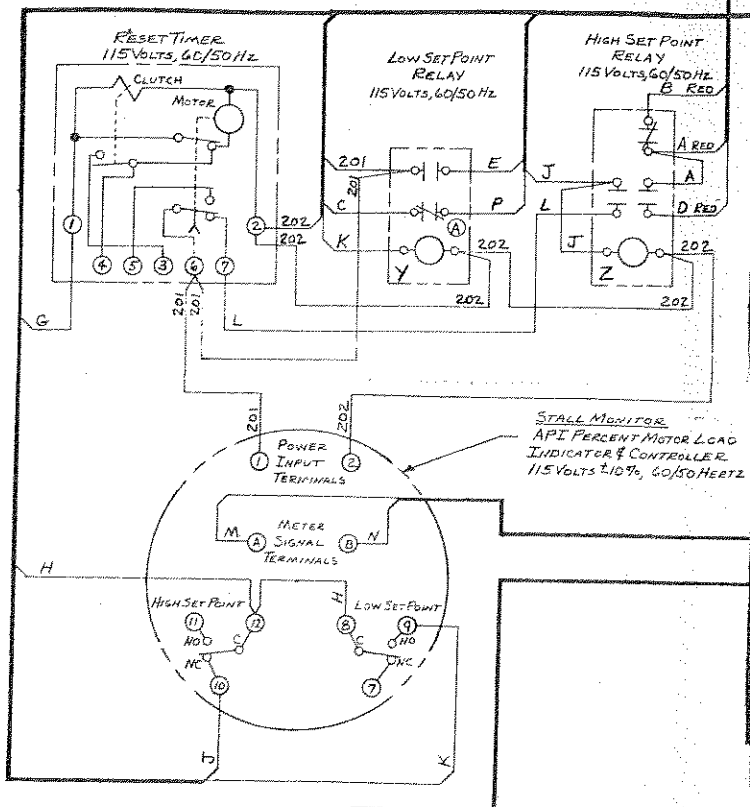 RESET TIMER
115 VOLTS, 60/50 Hz
CLUTCH
MOTOR
1
2
202
202
4
5
3
6
7
201
201
L
G
LOW SET POINT
RELAY
115 VOLTS, 60/50 Hz
201
201
E
C
P
A
K
Y
202
202
HIGH SET POINT
RELAY
115 VOLTS, 60/50 Hz
B RED
A RED
J
A
L
D RED
J
Z
202
202
201
202
POWER
INPUT
TERMINALS
1
2
STALL MONITOR
API PERCENT MOTOR LOAD
INDICATOR & CONTROLLER
115 VOLTS ±10%, 60/50 HERTZ
M
A
METER
SIGNAL
TERMINALS
B
N
H
H
HIGH SET POINT
LOW SET POINT
11
12
8
9
NO
C
C
NO
NC
NC
10
7
J
K